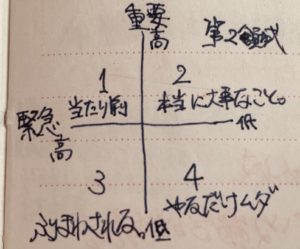 重要
高
第2領域
1
当たり前
2
本当に大事なこと。
緊急
高
低
3
ふりまわされる。
低
4
やるだけムダ